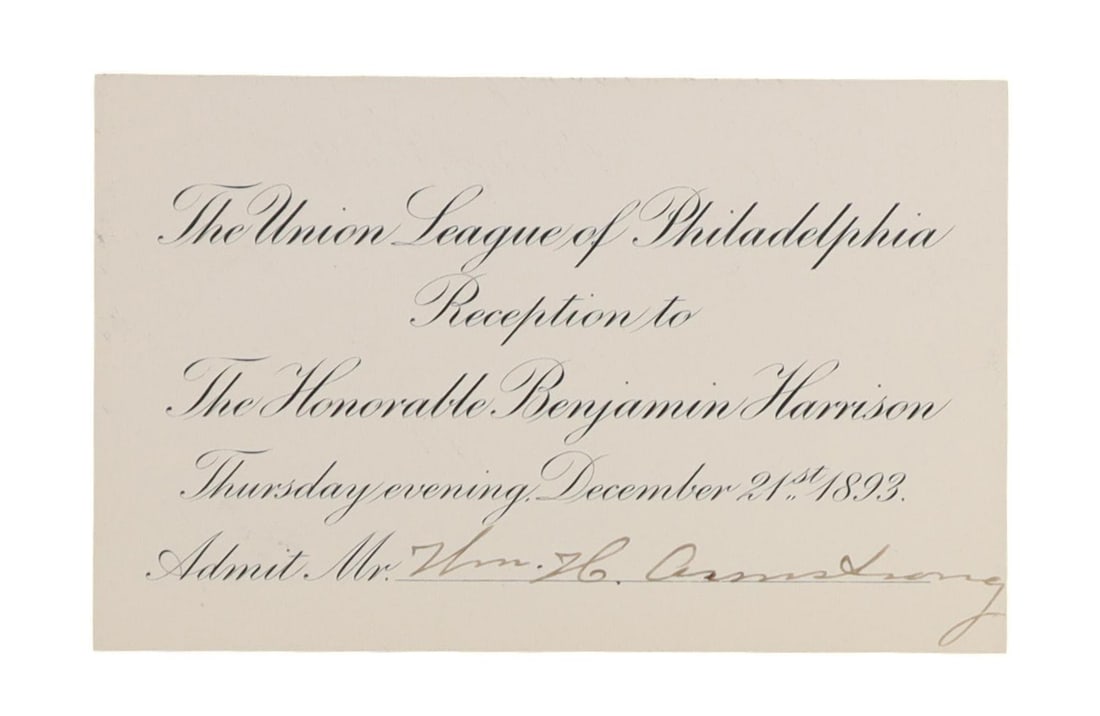 The Union League of Philadelphia
Reception to
The Honorable Benjamin Harrison
Thursday evening, December 21st 1893.
Admit Mr. Wm. H. Armstrong